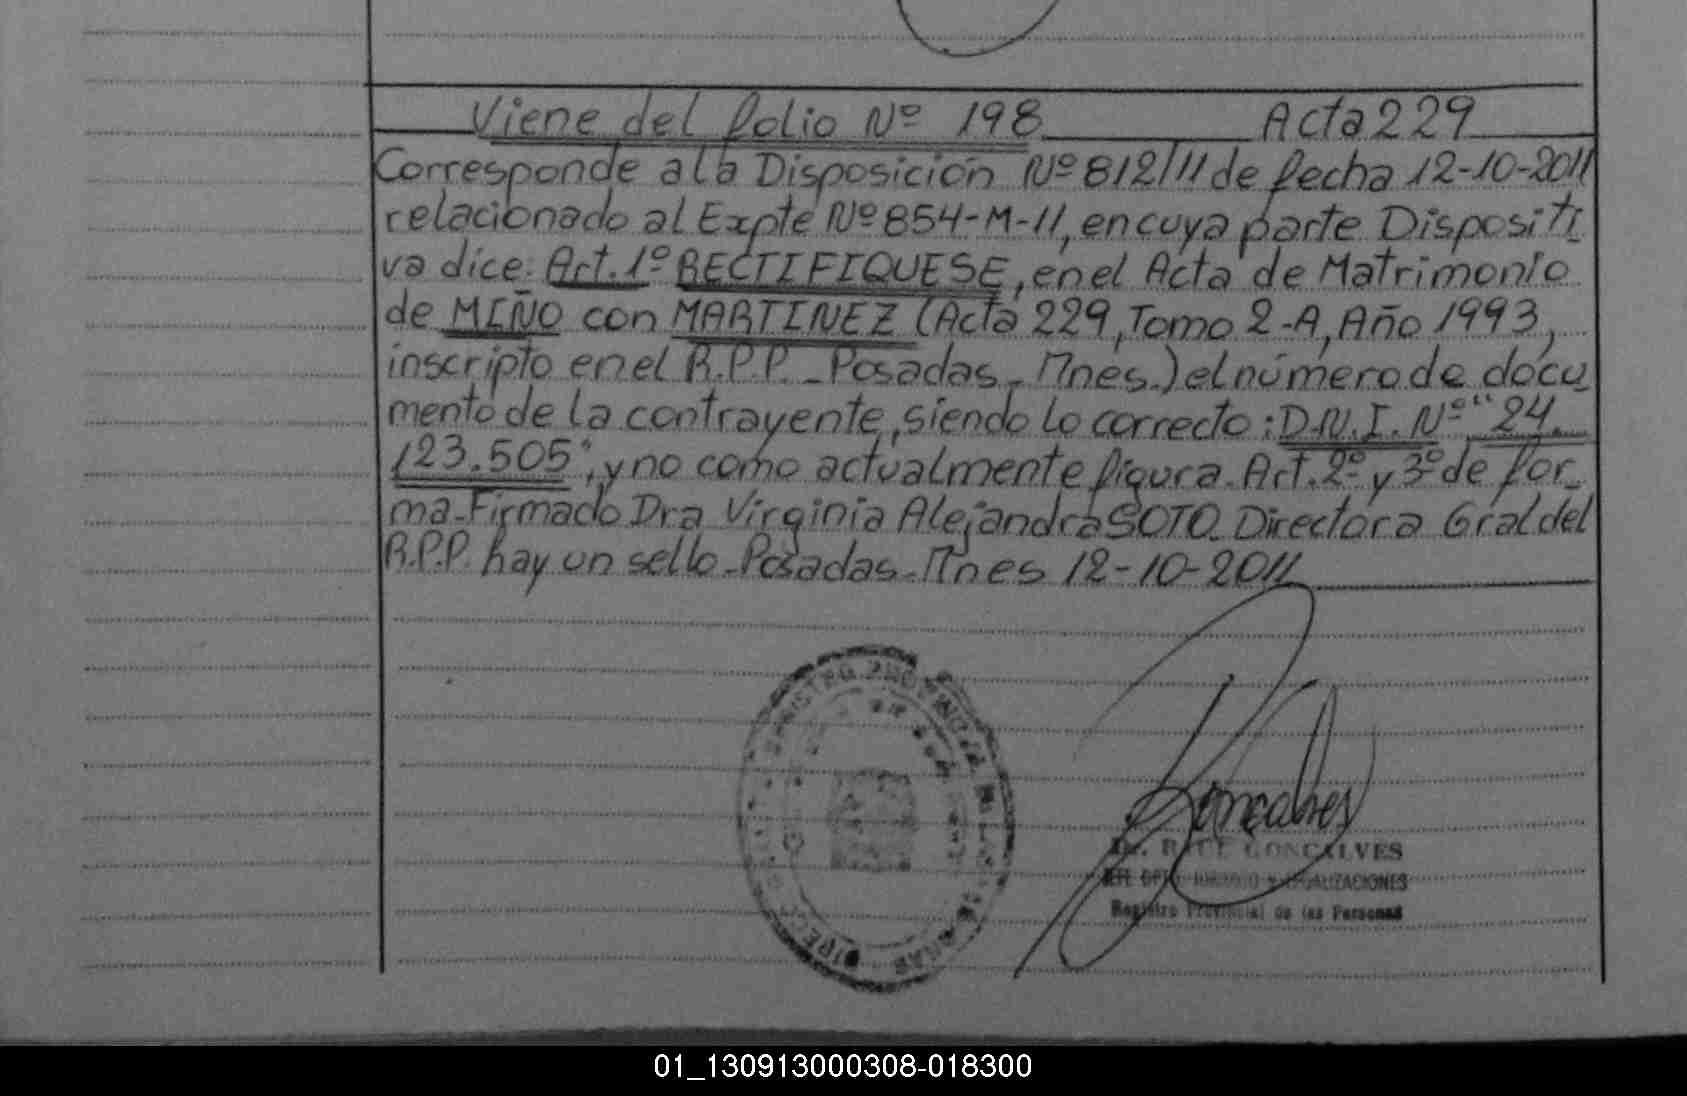 Viene del folio Nº 198 Acta 229
Corresponde a la Disposición Nº 812/11 de fecha 12-10-2011
relacionado al Expte Nº 854-M-11, en cuya parte Dispositi
va dice: Art. 1º RECTIFIQUESE, en el Acta de Matrimonio
de MIÑO con MARTINEZ (Acta 229, Tomo 2-A, Año 1993,
inscripto en el R.P.P. - Posadas - Mnes.) el número de docu
mento de la contrayente, siendo lo correcto: D.N.I. Nº "24.
123.505", y no como actualmente figura. Art. 2º y 3º de for
ma - Firmado Dra Virginia Alejandra SOTO. Directora Gral del
R.P.P. hay un sello - Posadas - Mnes 12-10-2011
Goncalves
Dr. RAUL GONCALVES
JEFE DPTO JURIDICO Y LEGALIZACIONES
Registro Provincial de las Personas
REGISTRO PROVINCIAL DE LAS PERSONAS
01_130913000308-018300